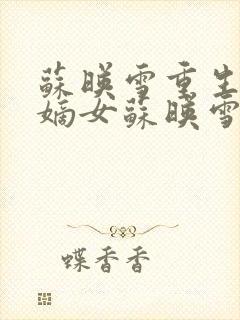 蘇暎雪重生
嫡女蘇暎雪
蝶香香